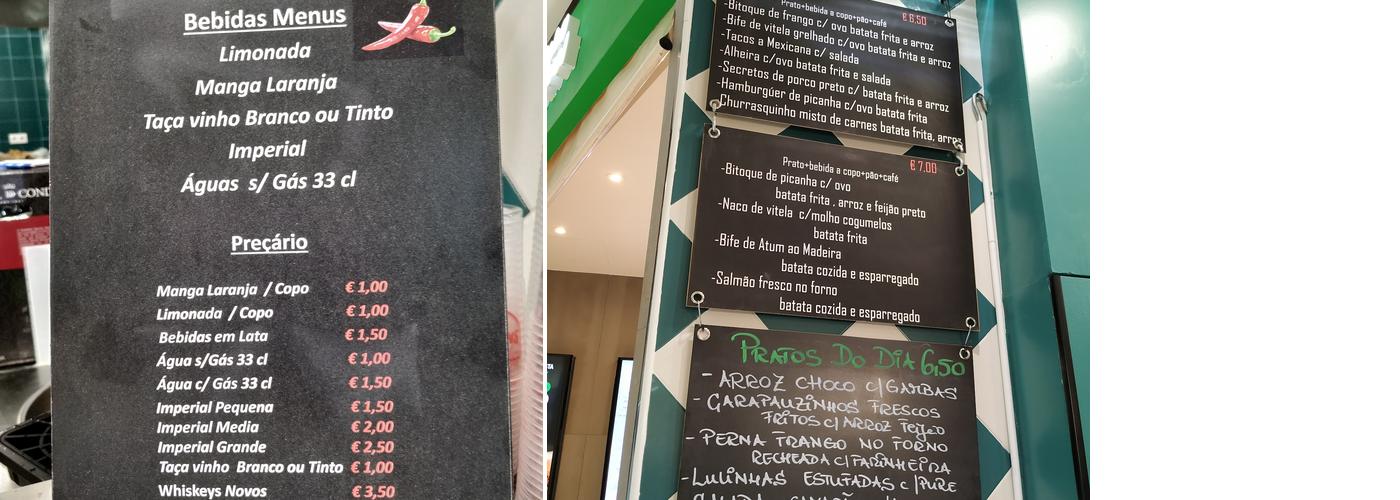 Bebidas Menus
Limonada
Manga Laranja
Taça vinho Branco ou Tinto
Imperial
Águas s/ Gás 33 cl
Preçário
Manga Laranja / Copo € 1,00
Limonada / Copo € 1,00
Bebidas em Lata € 1,50
Água s/Gás 33 cl € 1,00
Água c/ Gás 33 cl € 1,50
Imperial Pequena € 1,50
Imperial Media € 2,00
Imperial Grande € 2,50
Taça vinho Branco ou Tinto € 1,00
Whiskeys Novos € 3,50
COND
Prato+bebida a copo+pão+café € 6.50
-Bitoque de frango c/ ovo batata frita e arroz
-Bife de vitela grelhado c/ovo batata frita e arroz
-Tacos a Mexicana c/ salada
-Alheira c/ovo batata frita e salada
-Secretos de porco preto c/ batata frita e arroz
-Hamburgúer de picanha c/ovo batata frita
Churrasquinho misto de carnes batata frita, arroz
Prato+bebida a copo+pão+café € 7.00
-Bitoque de picanha c/ ovo
batata frita , arroz e feijão preto
-Naco de vitela c/molho cogumelos
batata frita
-Bife de Atum ao Madeira
batata cozida e esparregado
-Salmão fresco no forno
batata cozida e esparregado
PRATOS DO DIA 6,50
- ARROZ CHOCO C/GAMBAS
- GARAPAUZINHOS FRESCOS
FRITOS C/ARROZ Feijão
- PERNA FRANGO NO FORNO
RECHEADA C/FARINHEIRA
- LULINHAS ESTUFADAS C/PURE